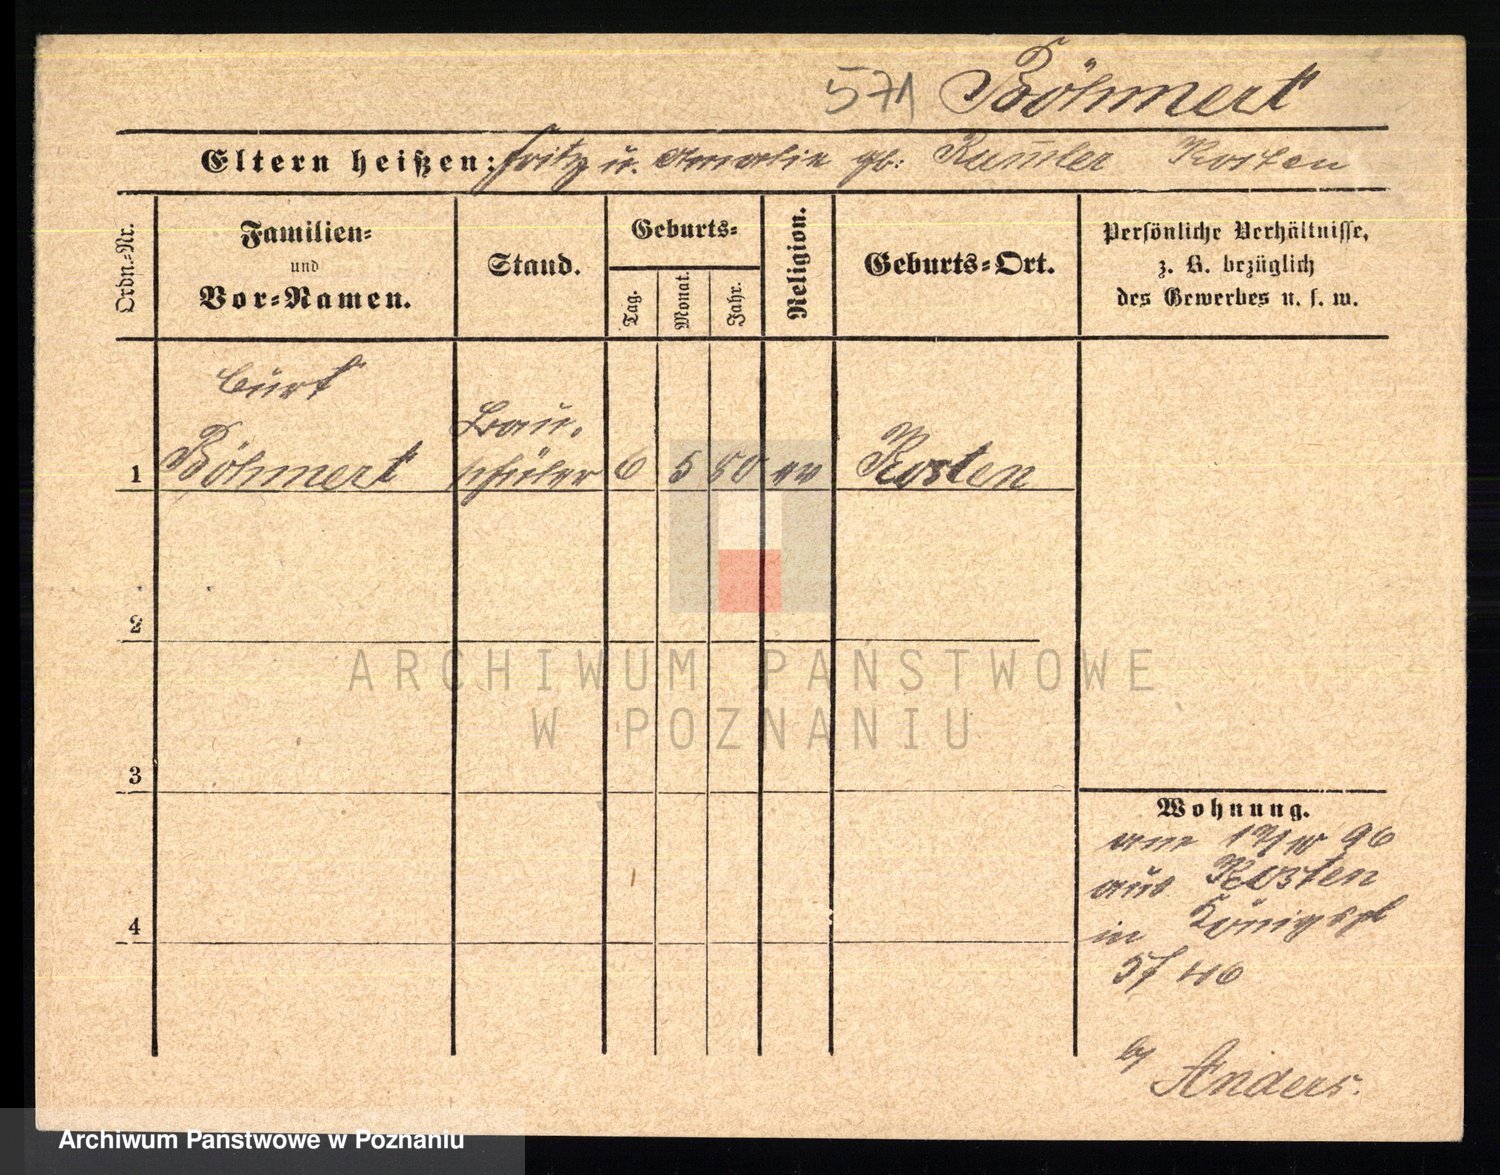 571 Böhmert
Eltern heißen: Fritz u. Amalie gb: Kosten
Ordn.-Nr.
Familien-
und
Vor-Namen.
Stand.
Geburts-
Tag.
Monat.
Jahr.
Religion.
Geburts-Ort.
Persönliche Verhältnisse,
z. B. bezüglich
des Gewerbes u. s. w.
Curt
Bau-
1 Böhmert schüler 6 5 80 ev Kosten
2
ARCHIWUM PAŃSTWOWE
W POZNANIU
3
Wohnung.
am 96
aus Kosten
4
in Königspl
Anders.
Archiwum Państwowe w Poznaniu